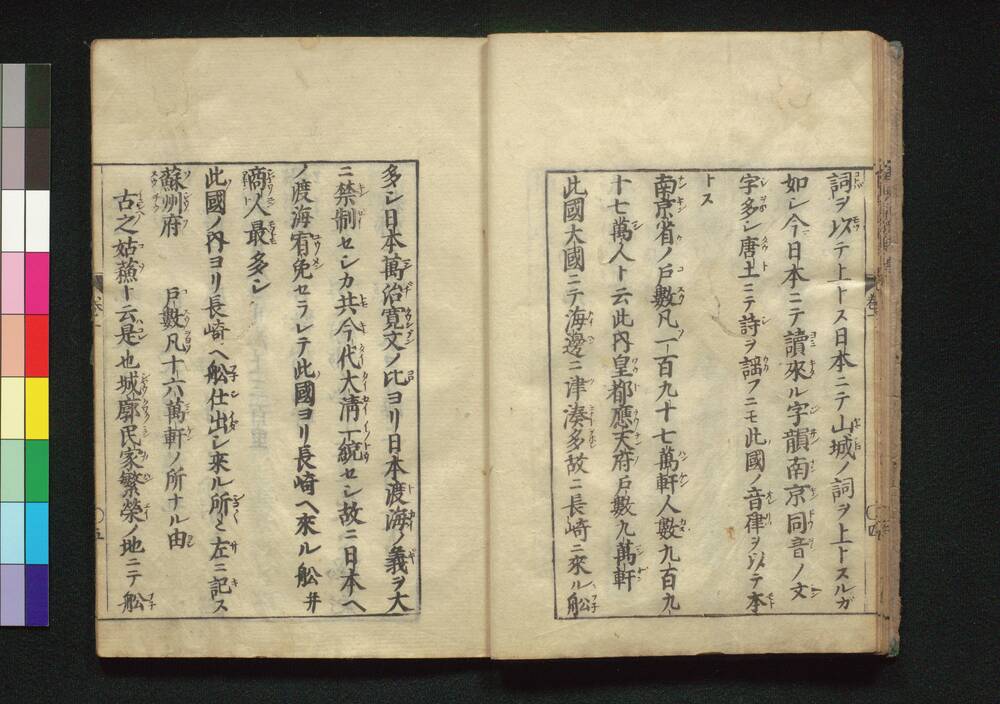 詞ヲ以テ上トス日本ニテ山城ノ詞ヲ上トスルガ
如シ今日本ニテ讀來ル字韻南京同音ノ文
字多シ唐土ニテ詩ヲ謡フニモ此國ノ音律ヲ以テ本
トス
南京省ノ戸數凡一百九十七萬軒人數九百九
十七萬人ト云此内皇都應天府戸數九萬軒
此國大國ニテ海邊ニ津湊多故ニ長崎ニ來ル舩
多シ日本萬治寛文ノ比ヨリ日本渡海ノ義ヲ大
ニ禁制セシカ共今代大清一統セシ故ニ日本ヘ
ノ渡海宥免セラレテ此國ヨリ長崎ヘ來ル舩并
商人最多シ
此國ノ内ヨリ長崎ヘ舩仕出シ來ル所々左ニ記ス
蘇州府 戸數凡十六萬軒ノ所ナル由
古之姑蘓ト云是也城廓民家繁榮ノ地ニテ舩